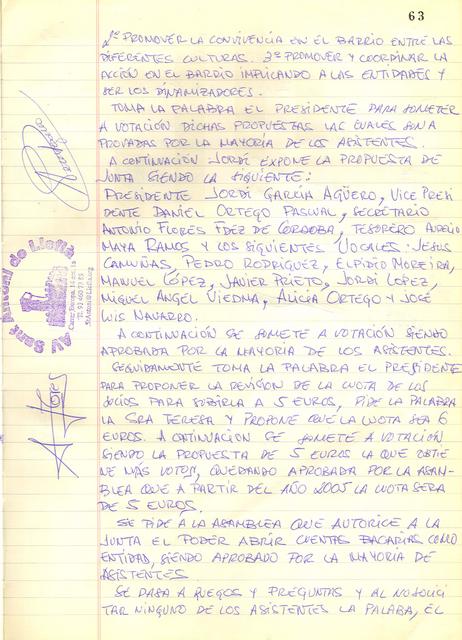 63
2º PROMOVER LA CONVIVENCIA EN EL BARRIO ENTRE LAS
DIFERENTES CULTURAS. 3º PROMOVER Y COORDINAR LA
ACCIÓN EN EL BARRIO IMPLICANDO A LAS ENTIDADES Y
SER LOS DINAMIZADORES.
TOMA LA PALABRA EL PRESIDENTE PARA SOMETER
A VOTACIÓN DICHAS PROPUESTAS LAS CUALES SON A
PROVADAS POR LA MAYORIA DE LOS ASISTENTES.
A CONTINUACIÓN JORDI EXPONE LA PROPUESTA DE
JUNTA SIENDO LA SIGUIENTE:
PRESIDENTE JORDI GARCÍA AGÜERO, VICE PRESI
DENTE DANIEL ORTEGO PASCUAL, SECRETARIO
ANTONIO FLORES FDEZ DE CÓRDOBA, TESORERO AURELIO
MAYA RAMOS Y LOS SIGUIENTES VOCALES: JESUS
CAMUÑAS, PEDRO RODRIGUEZ, ELPIDIO MOREIRA,
MANUEL LÓPEZ, JAVIER PRIETO, JORDI LOPEZ,
MIGUEL ANGEL VIEDMA, ALICIA ORTEGO Y JOSÉ
LUIS NAVARRO.
A CONTINUACIÓN SE SOMETE A VOTACIÓN SIENDO
APROBADA POR LA MAYORIA DE LOS ASISTENTES.
SEGUIDAMENTE TOMA LA PALABRA EL PRESIDENTE
PARA PROPONER LA REVISIÓN DE LA CUOTA DE LOS
SOCIOS PARA SUBIRLA A 5 EUROS, PIDE LA PALABRA
LA SRA TERESA Y PROPONE QUE LA CUOTA SEA 6
EUROS. A CONTINUACIÓN SE SOMETE A VOTACIÓN
SIENDO LA PROPUESTA DE 5 EUROS LA QUE OBTIE
NE MÁS VOTOS, QUEDANDO APROBADA POR LA ASAM-
BLEA QUE A PARTIR DEL AÑO 2005 LA CUOTA SERA
DE 5 EUROS.
SE PIDE A LA ASAMBLEA QUE AUTORICE A LA
JUNTA EL PODER ABRIR CUENTAS BACARIAS COMO
ENTIDAD, SIENDO APROBADO POR LA MAYORIA DE
ASISTENTES
SE DA PASO A RUEGOS Y PREGUNTAS Y AL NO SOLICI
TAR NINGUNO DE LOS ASISTENTES LA PALABA, EL
AV Sant Antoni de Llefià